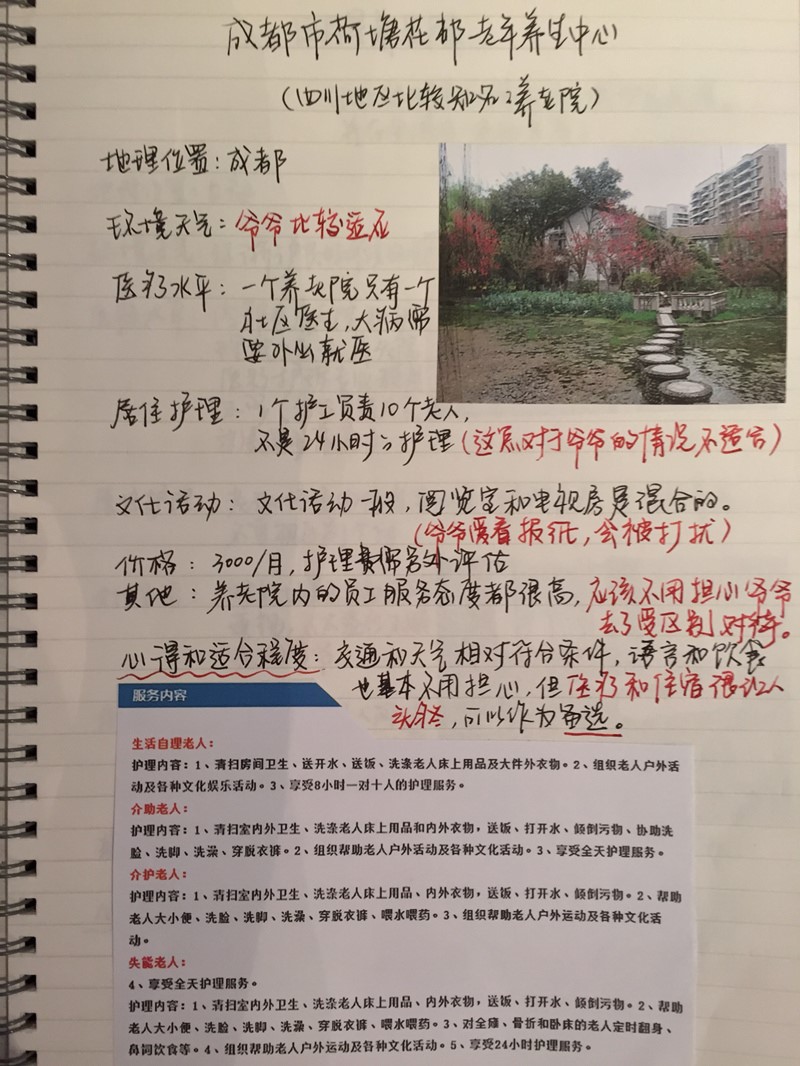 成都市荷塘花都老年养生中心
(四川地区比较知名的养老院)
地理位置:成都
环境天气:爷爷比较适应
医疗水平:一个养老院只有一个
社区医生,大病需
要外出就医
居住护理:1个护工负责10个老人,
不是24小时的护理(这点对于爷爷的情况不适合)
文化活动:文化活动一般,阅览室和电视房是混合的。
(爷爷爱看报纸,会被打扰)
价格:3000/月,护理费需另外评估
其他:养老院内的员工服务态度都很高,应该不用担心爷爷
去了受区别对待。
心得和适合程度:交通和天气相对符合条件,语言和饮食
也基本不用担心,但医疗和住宿很让人
头疼,可以作为备选。
服务内容
生活自理老人:
护理内容:1、清扫房间卫生、送开水、送饭、洗涤老人床上用品及大件外衣物。2、组织老人户外活
动及各种文化娱乐活动。3、享受8小时一对十人的护理服务。
介助老人:
护理内容:1、清扫室内外卫生、洗涤老人床上用品和内外衣物,送饭、打开水、倾倒污物、协助洗
脸、洗脚、洗澡、穿脱衣裤。2、组织帮助老人户外活动及各种文化活动。3、享受全天护理服务。
介护老人:
护理内容:1、清扫室内外卫生、洗涤老人床上用品、内外衣物,送饭、打开水、倾倒污物。2、帮助
老人大小便、洗脸、洗脚、洗澡、穿脱衣裤、喂水喂药。3、组织帮助老人户外运动及各种文化活
动。
失能老人:
4、享受全天护理服务。
护理内容:1、清扫室内外卫生、洗涤老人床上用品、内外衣物,送饭、打开水、倾倒污物。2、帮助
老人大小便、洗脸、洗脚、洗澡、穿脱衣裤、喂水喂药。3、对全瘫、骨折和卧床的老人定时翻身、
鼻饲饮食等。4、组织帮助老人户外运动及各种文化活动。5、享受24小时护理服务。